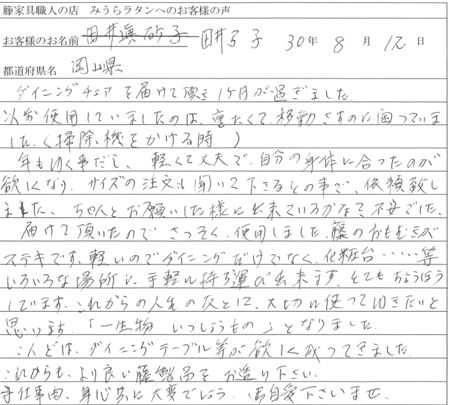 籐家具職人の店 みうらラタンへのお客様の声
お客様のお名前 田井眞砂子 田井 子 30年 8月 12日
都道府県名 岡山県
ダイニングチェアを届けて頂き1ヶ月が過ぎました。
以前使用していましたのは、重たくて移動さすのに困っていま
した。(掃除機をかける時)
年もゆく事だし、軽くて丈夫で、自分の身体に合ったのが
欲しくなり、サイズの注文も聞いて下さるとの事で、依頼致し
ました。ちゃんとお願いした様に出来ているかなァて不安でした。
届けて頂いたので さっそく、使用しました。藤のおもむきが
ステキです。軽いのでダイニングだけでなく、化粧台……等
いろいろな場所に、手軽に持ち運び出来ます。とてもちょうほう
しています。これからの人生の友として、大切に使って行きたいと
思います。「一生物 いっしょうもの」となりました。
こんどは、ダイニングテーブル等が欲しく成ってきました。
これからも、より良い藤製品をお造り下さい。
手仕事由、身心共に大変でしょう。御自愛下さいませ。